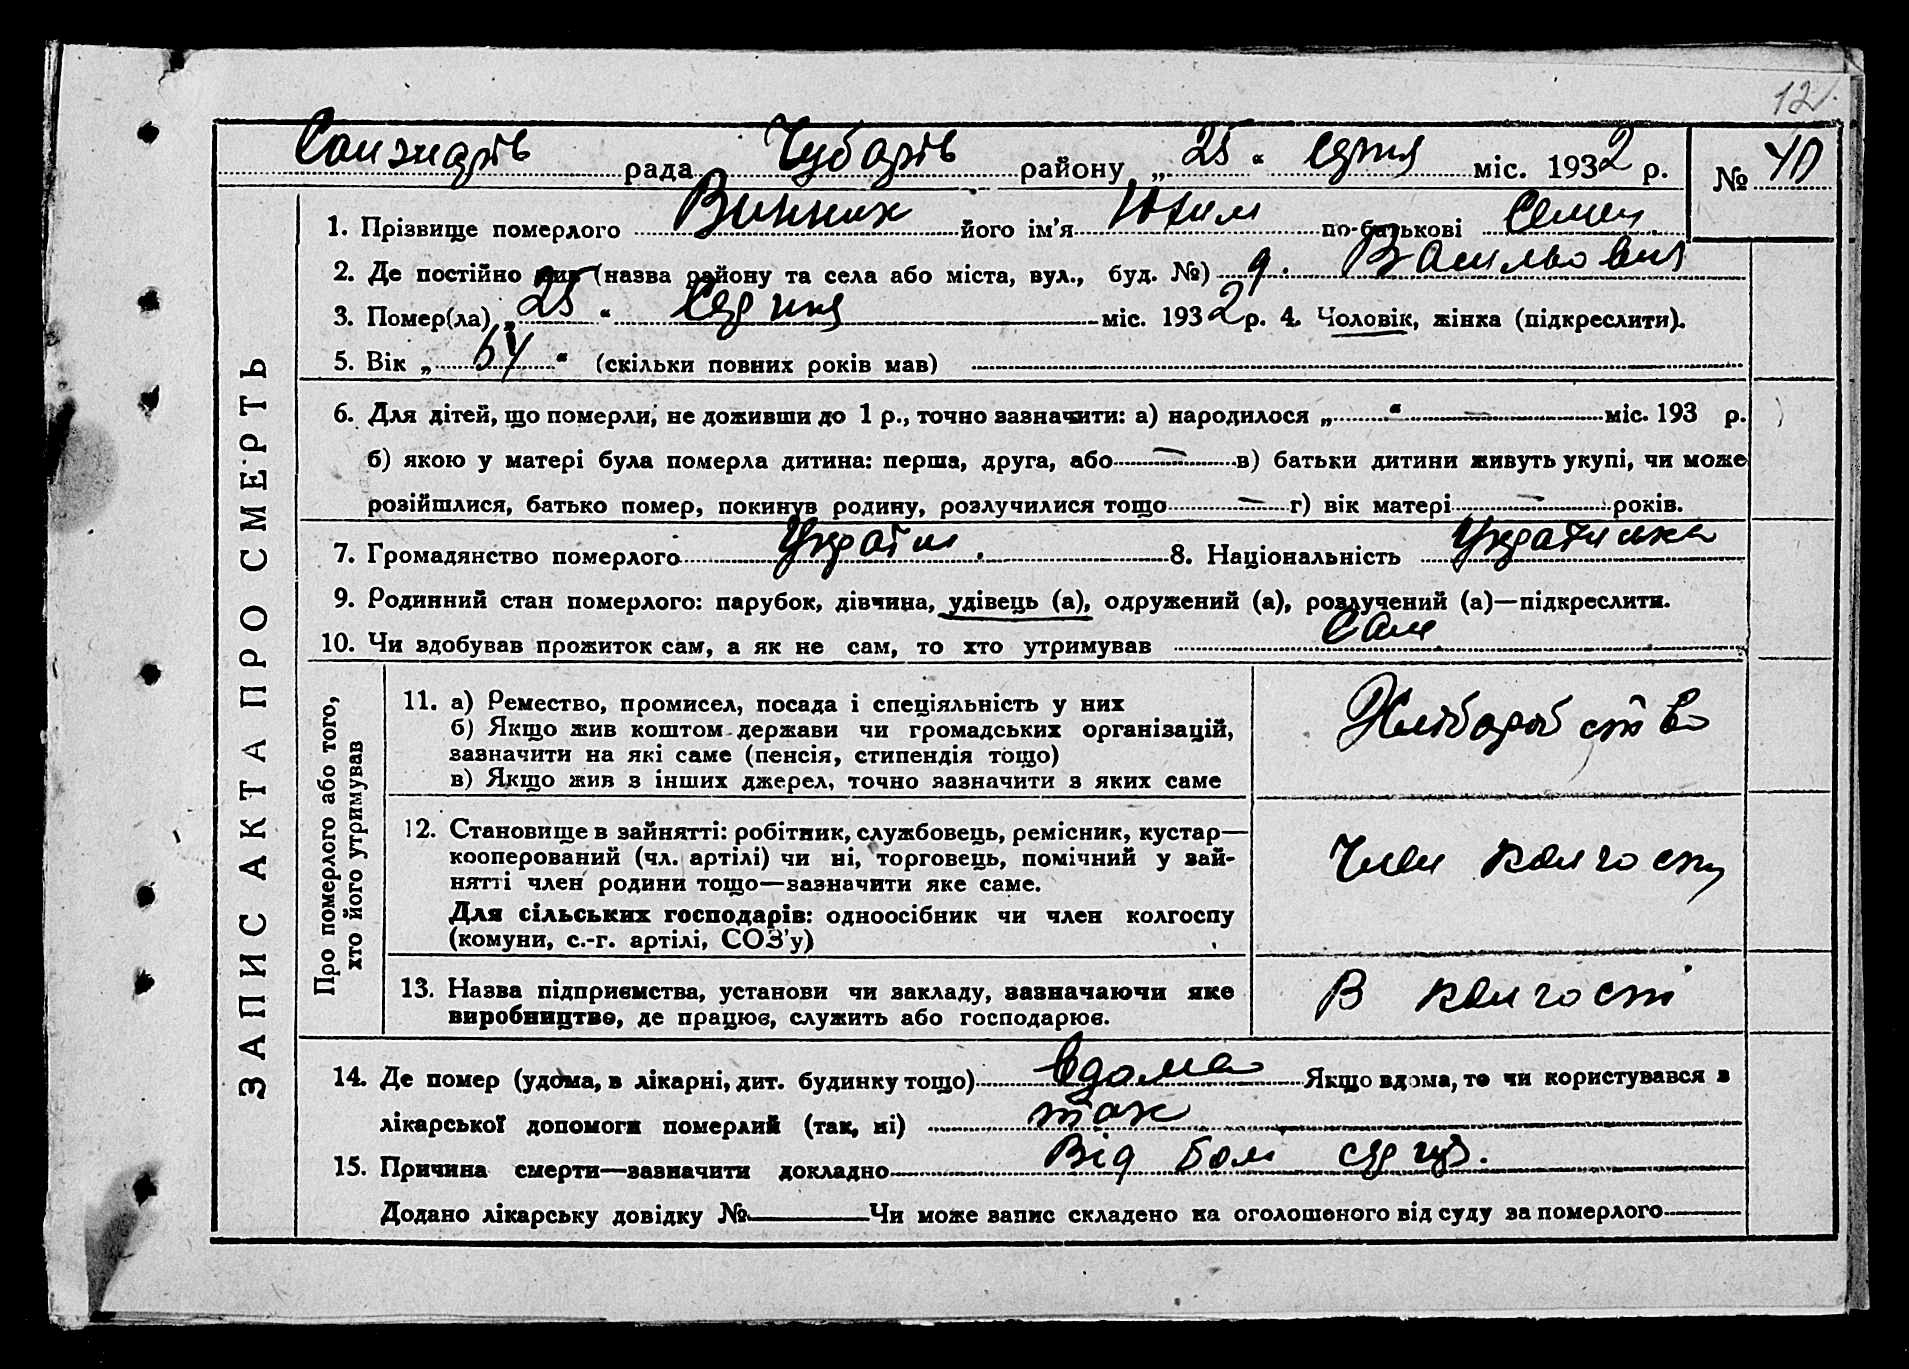 12
Санжарів рада Чубарів району „25“ серпня міс. 1932 р. № 40
1. Прізвище померлого Винник його ім'я Юхим по-батькові Семен.
2. Де постійно жив (назва району та села або міста, вул., буд. №)
3. Помер(ла) „25“ серпня міс. 1932 р. 4. Чоловік, жінка (підкреслити).
5. Вік „64“ (скільки повних років мав)
6. Для дітей, що померли, не доживши до 1 р., точно зазначити: а) народилося „ “ — міс. 193 р.
б) якою у матері була померла дитина: перша, друга, або — в) батьки дитини живуть укупі, чи може
розійшлися, батько помер, покинув родину, розлучилися тощо — г) вік матері — років.
7. Громадянство померлого Україн. 8. Національність Українська
9. Родинний стан померлого: парубок, дівчина, удівець (а), одружений (а), розлучений (а)—підкреслити.
10. Чи здобував прожиток сам, а як не сам, то хто утримував Сам
ЗАПИС АКТА ПРО СМЕРТЬ
Про померлого або того,
хто його утримував
11. а) Ремество, промисел, посада і спеціяльність у них
б) Якщо жив коштом держави чи громадських організацій,
зазначити на які саме (пенсія, стипендія тощо)
в) Якщо жив з інших джерел, точно зазначити з яких саме
Хліборобство
12. Становище в зайнятті: робітник, службовець, ремісник, кустар—
кооперований (чл. артілі) чи ні, торговець, помічний у зай-
нятті член родини тощо—зазначити яке саме.
Для сільських господарів: одноосібник чи член колгоспу
(комуни, с.-г. артілі, СОЗ'у)
Член колгоспу
13. Назва підприємства, установи чи закладу, зазначаючи яке
виробництво, де працює, служить або господарює.
В колгоспі
14. Де помер (удома, в лікарні, дит. будинку тощо) вдома Якщо вдома, то чи користувався з
лікарської допомоги померлий (так, ні) так
15. Причина смерти—зазначити докладно Від болі серця.
Додано лікарську довідку № Чи може запис складено на оголошеного від суду за померлого